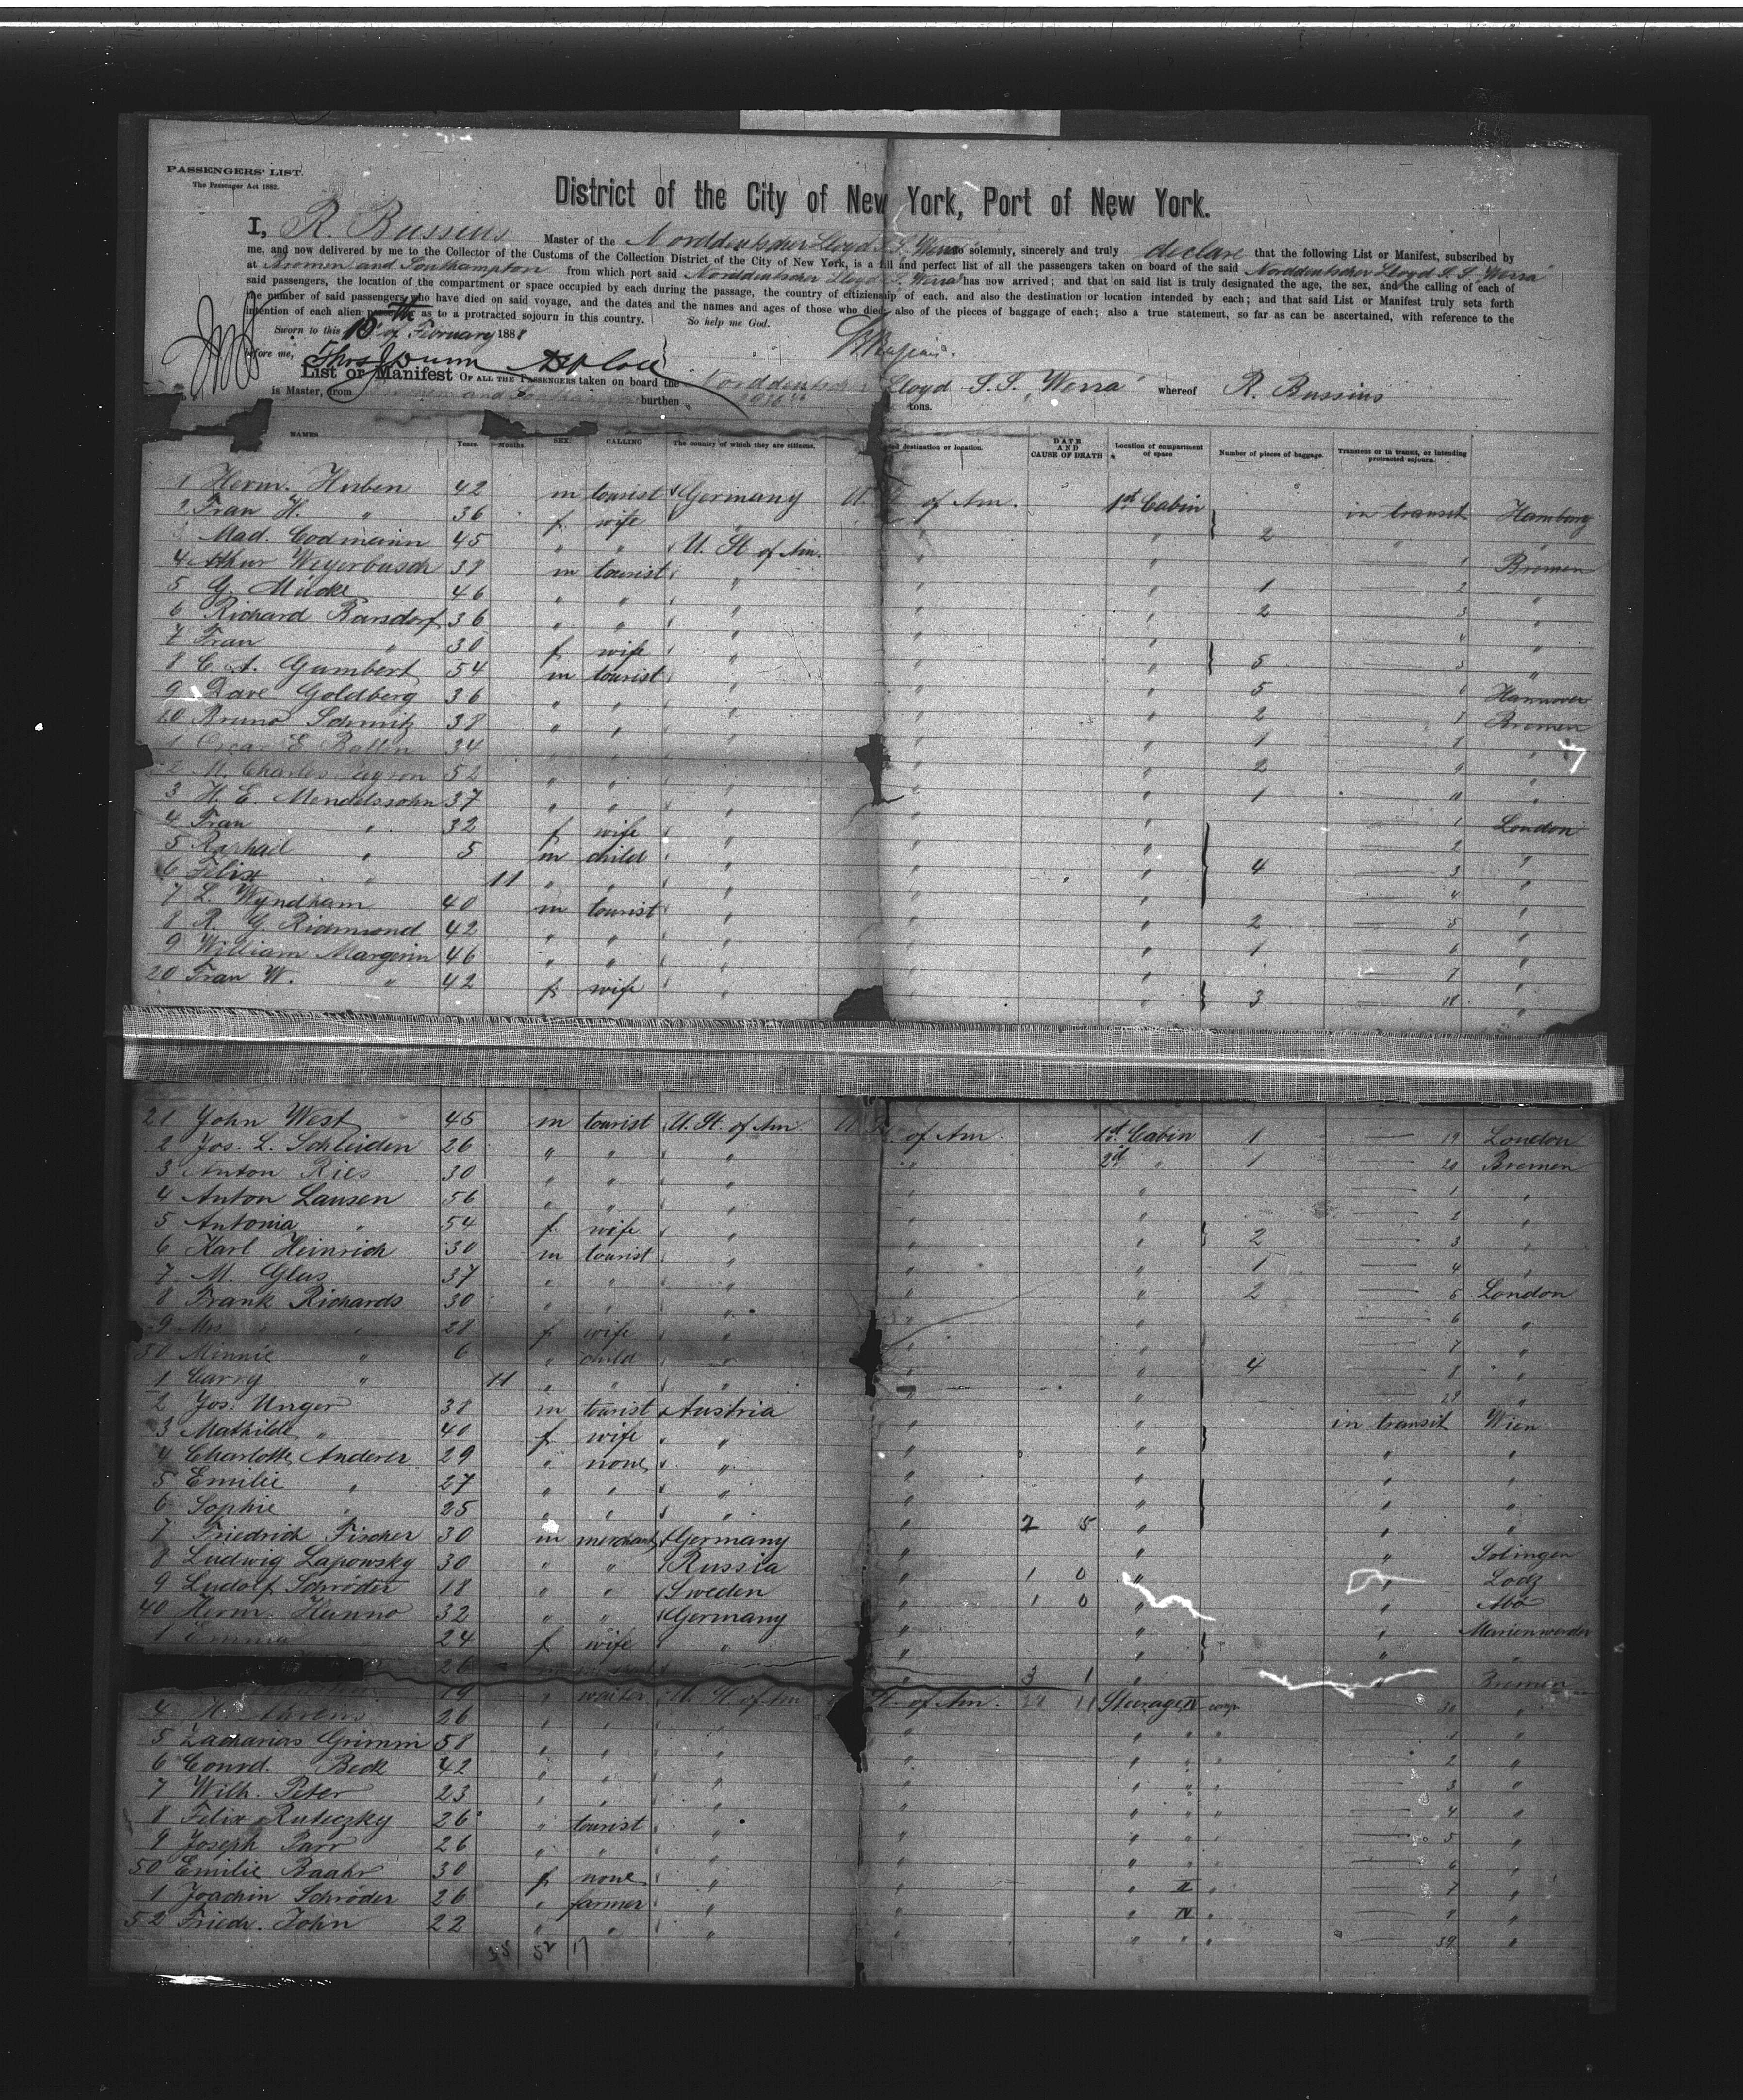 PASSENGERS' LIST.
The Passenger Act 1882.
District of the City of New York, Port of New York.
I, R. Bussius Master of the Norddeutscher Lloyd S.S. "Werra" do solemnly, sincerely and truly declare that the following List or Manifest, subscribed by
me, and now delivered by me to the Collector of the Customs of the Collection District of the City of New York, is a full and perfect list of all the passengers taken on board of the said Norddeutscher Lloyd S.S. "Werra"
at Bremen and Southampton from which port said Norddeutscher Lloyd S.S. "Werra" has now arrived; and that on said list is truly designated the age, the sex, and the calling of each of
said passengers, the location of the compartment or space occupied by each during the passage, the country of citizenship of each, and also the destination or location intended by each; and that said List or Manifest truly sets forth
the number of said passengers who have died on said voyage, and the dates and the names and ages of those who died; also of the pieces of baggage of each; also a true statement, so far as can be ascertained, with reference to the
intention of each alien as to a protracted sojourn in this country. So help me God.
Sworn to this 10th of February 1888
before me, Thos J Dunn R Bussius.
List or Manifest OF ALL THE PASSENGERS taken on board the Norddeutscher Lloyd S.S. "Werra" whereof R. Bussius
is Master, from Bremen and Southampton burthen tons.
NAMES Years. Months. SEX. CALLING The country of which they are citizens. destination or location. DATE AND CAUSE OF DEATH Location of compartment or space Number of pieces of baggage. Transient or in transit, or intending protracted sojourn.
1 Herm. Huben 42 m tourist Germany U. St. of Am. 1st Cabin in transit Hamburg
2 Frau H. " 36 f wife " " " 2 " "
Mad. Codmann 45 " " U. St. of Am. " " 1 Bremen
4 Arthur Weyerbusch 38 m tourist " " " 1 2 "
5 G. Milcke 46 " " " " " 2 3 "
6 Richard Barsdorf 36 " " " " " 4 "
7 Frau " 30 f wife " " " 5 5 "
8 C. A. Gumbert 54 m tourist " " " 5 6 Hannover
9 Dave Goldberg 36 " " " " " 2 Bremen
10 Bruno Schmitz 38 " " " " " 1 8 "
1 Oscar E. Ballin 34 " " " " " 2 9 "
2 M. Charles 52 " " " " " 1 "
3 H. E. Mendelssohn 37 " " " " " 1 London
4 Frau " 32 f wife " " " 2 "
5 Raphael " 5 m child " " " 4 3 "
6 Felix " 11 " " " " " 4 "
7 L. Wyndham 40 m tourist " " " 2 5 "
8 R. G. Ridmond 42 " " " " " 1 6 "
9 William Margerin 46 " " " " " 7 "
20 Frau W. " 42 f wife " " " 3 18 "
21 John West 45 m tourist U. St. of Am. U. St. of Am. 1st Cabin 1 19 London
2 Jos. L. Schleiden 26 " " " " 2d " 1 20 Bremen
3 Anton Ries 30 " " " " " 1 "
4 Anton Lausen 56 " " " " " 2 "
5 Antonia " 54 f wife " " " 2 3 "
6 Karl Heinrich 30 m tourist " " " 1 4 "
7 M. Glas 37 " " " " " 2 5 London
8 Frank Richards 30 " " " " " 6 "
9 Mrs " 28 f wife " " " 7 "
30 Minnie " 6 " child " " " 4 8 "
1 Carry " 11 " " " " " 29 "
2 Jos. Unger 38 m tourist Austria " " in transit Wien
3 Mathilde " 40 f wife " " " " "
4 Charlotte Anderer 29 " none " " " " "
5 Emilie " 27 " " " " " " "
6 Sophie " 25 " " " " 2 5 " " "
7 Friedrich Fischer 30 m merchant Germany " " " Solingen
8 Ludwig Lapowsky 30 " " Russia " 1 0 " " Lodz
9 Ludolf Schröder 18 " " Sweden " 1 0 " " Abo
40 Herm. Hanno 32 " " Germany " " " Marienwerder
1 Emma " 24 f wife " " " " "
26 " 3 1 " " Bremen
19 " waiter U. St. of Am. St. of Am. 22 11 Steerage IV comp. 30 "
4 H. 26 " " " " " " " 1 "
5 Zacharias Grimm 58 " " " " " " " 2 "
6 Conrd. Beck 42 " " " " " " " 3 "
7 Wilh. Peter 23 " " " " " " " 4 "
8 Felix Ruteczky 26 " tourist " " " " " 5 "
9 Joseph Parr 26 " " " " " " " 6 "
50 Emilie Baahr 30 f none " " " II " 7 "
1 Joachim Schröder 26 " farmer " " " IV " 8 "
52 Friedr. John 22 " " " " " " " 39 "
35 52 17